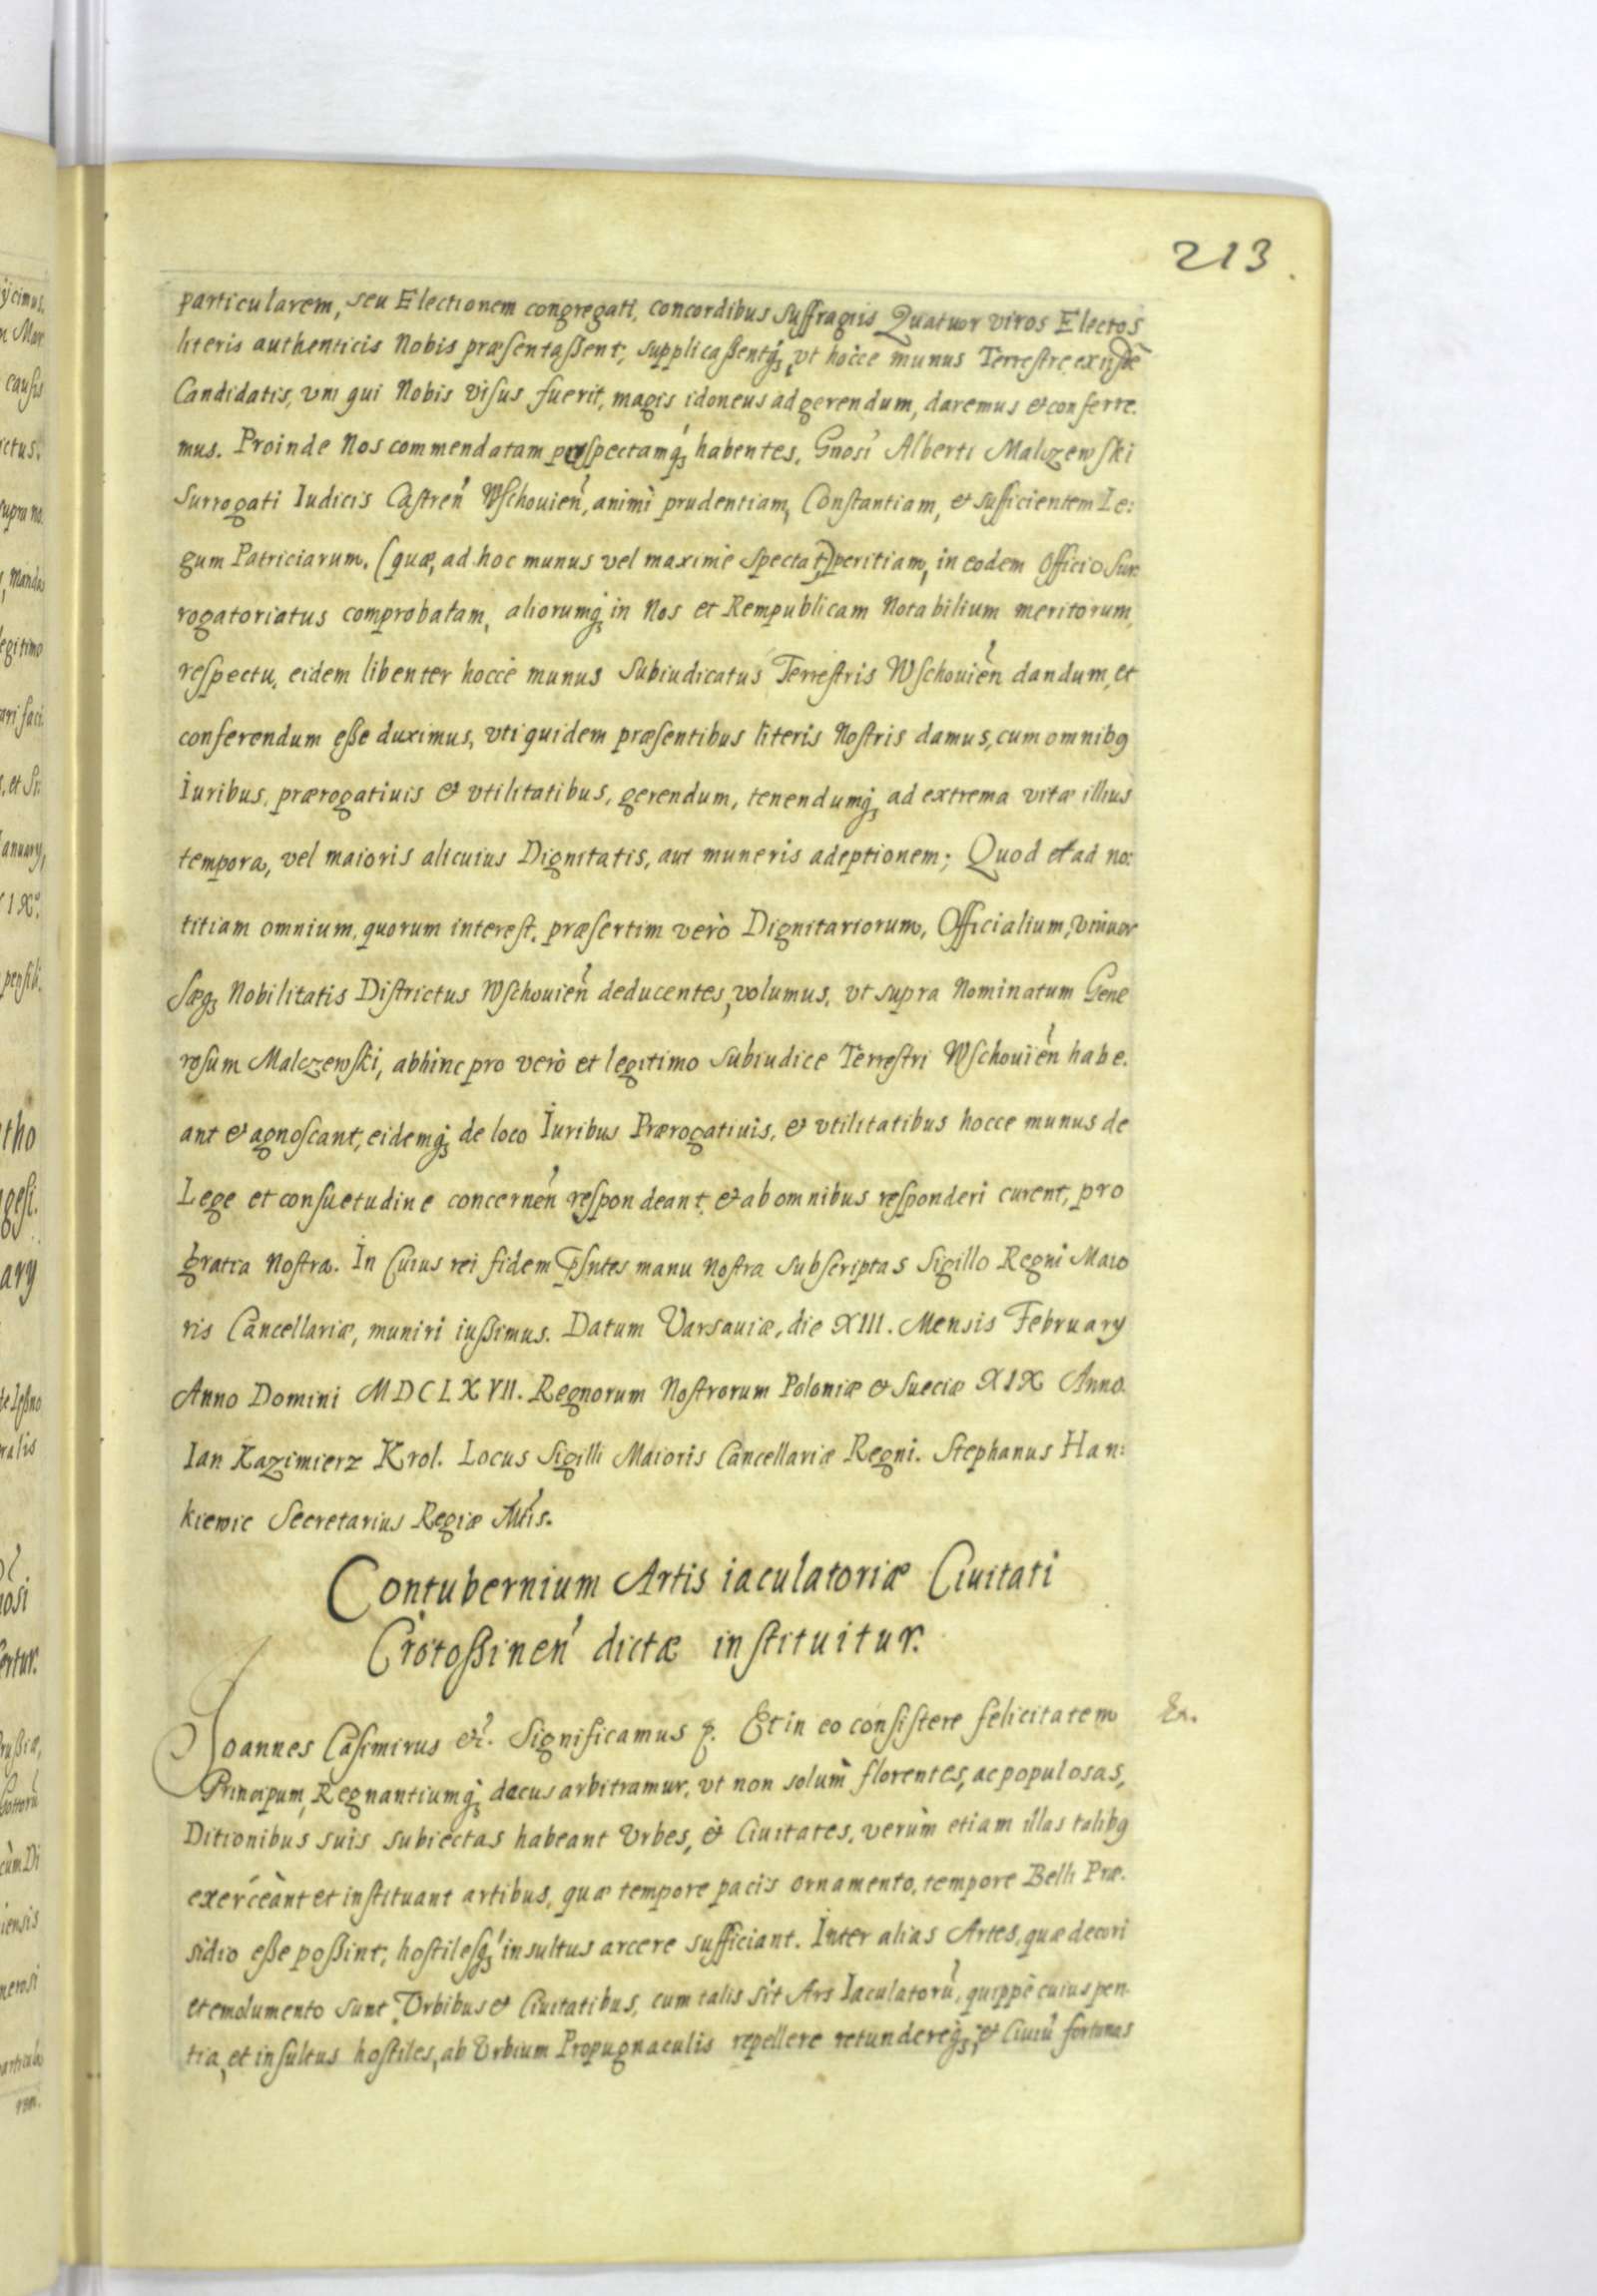 213.
particularem, seu Electionem congregati, concordibus suffragiis Quatuor viros Electos
literis authenticis Nobis præsentaßent, supplicaßentq́ꝫ, vt hocce munus Terrestre ex ijsdē
Candidatis, vni qui Nobis visus fuerit, magis idoneus ad gerendum, daremus et conferre.
mus. Proinde Nos commendatam perspectamq́ꝫ habentes, Gnosi Alberti Malczewski
Surrogati Iudicis Castren̄ Wschouien̄, animi prudentiam, Constantiam, et sufficientem Le:
gum Patriciarum, (quæ, ad hoc munus vel maximè spectat,) peritiam, in eodem Officio Sur:
rogatoriatus comprobatam, aliorumq́ꝫ in Nos et Rempublicam Notabilium meritorum,
respectu, eidem libenter hoccè munus Subiudicatus Terrestris Wschouien̄ dandum, et
conferendum eße duximus, vti quidem præsentibus literis Nostris damus, cum omnibꝯ
Iuribus, prærogatiuis & vtilitatibus, gerendum, tenendumq́ꝫ ad extrema vitæ illius
tempora, vel maioris alicuius Dignitatis, aut muneris adeptionem; Quod et ad no:
titiam omnium, quorum interest, præsertim verò Dignitariorum, Officialium, vniuer
sæqꝫ Nobilitatis Districtus Wschouien̄ deducentes, volumus, vt supra Nominatum Gene
rosum Malczewski, abhinc pro verò et legitimo Subiudice Terrestri Wschouien̄ habe.
ant & agnoscant, eidemq́ꝫ de loco Iuribus Prærogatiuis, & vtilitatibus hocce munus de
Lege et consuetudine concernen̄ respondeant, & ab omnibus responderi curent, pro
gratia Nostra. In Cuius rei fidem Pn̄tes manu Nostra Subscriptas Sigillo Regni Maio
ris Cancellariæ, muniri iußimus. Datum Varsauiæ, die XIII. Mensis February
Anno Domini MDCLXVII. Regnorum Nostrorum Poloniæ & Sueciæ XIX Anno.
Ian Kazimierz Krol. Locus Sigilli Maioris Cancellariæ Regni. Stephanus Han:
kiewic Secretarius Regiæ Mt̄is.
Contubernium Artis iaculatoriæ Ciuitati
Crotoßinen̄ dictæ instituitur.
Ioannes Casimirus &c̄. Significamus p. Et in eo consistere felicitatem
Principum, Regnantiumq́ꝫ decus arbitramur, vt non solum florentes, ac populosas,
Ditionibus suis subiectas habeant Vrbes, & Ciuitates, verùm etiam illas talibꝯ
exerceant et instituant artibus, quæ tempore pacis ornamento, tempore Belli Præ.
sidio eße poßint, hostilesq́ꝫ insultus arcere sufficiant. Inter alias Artes, quæ decori
et emolumento sunt Vrbibus & Ciuitatibus, cum talis sit Ars Iaculatorū, quippè cuius peri
tia, et insultus hostiles, ab Vrbium Propugnaculis repellere retundereq́ꝫ, et Ciuiū fortunas